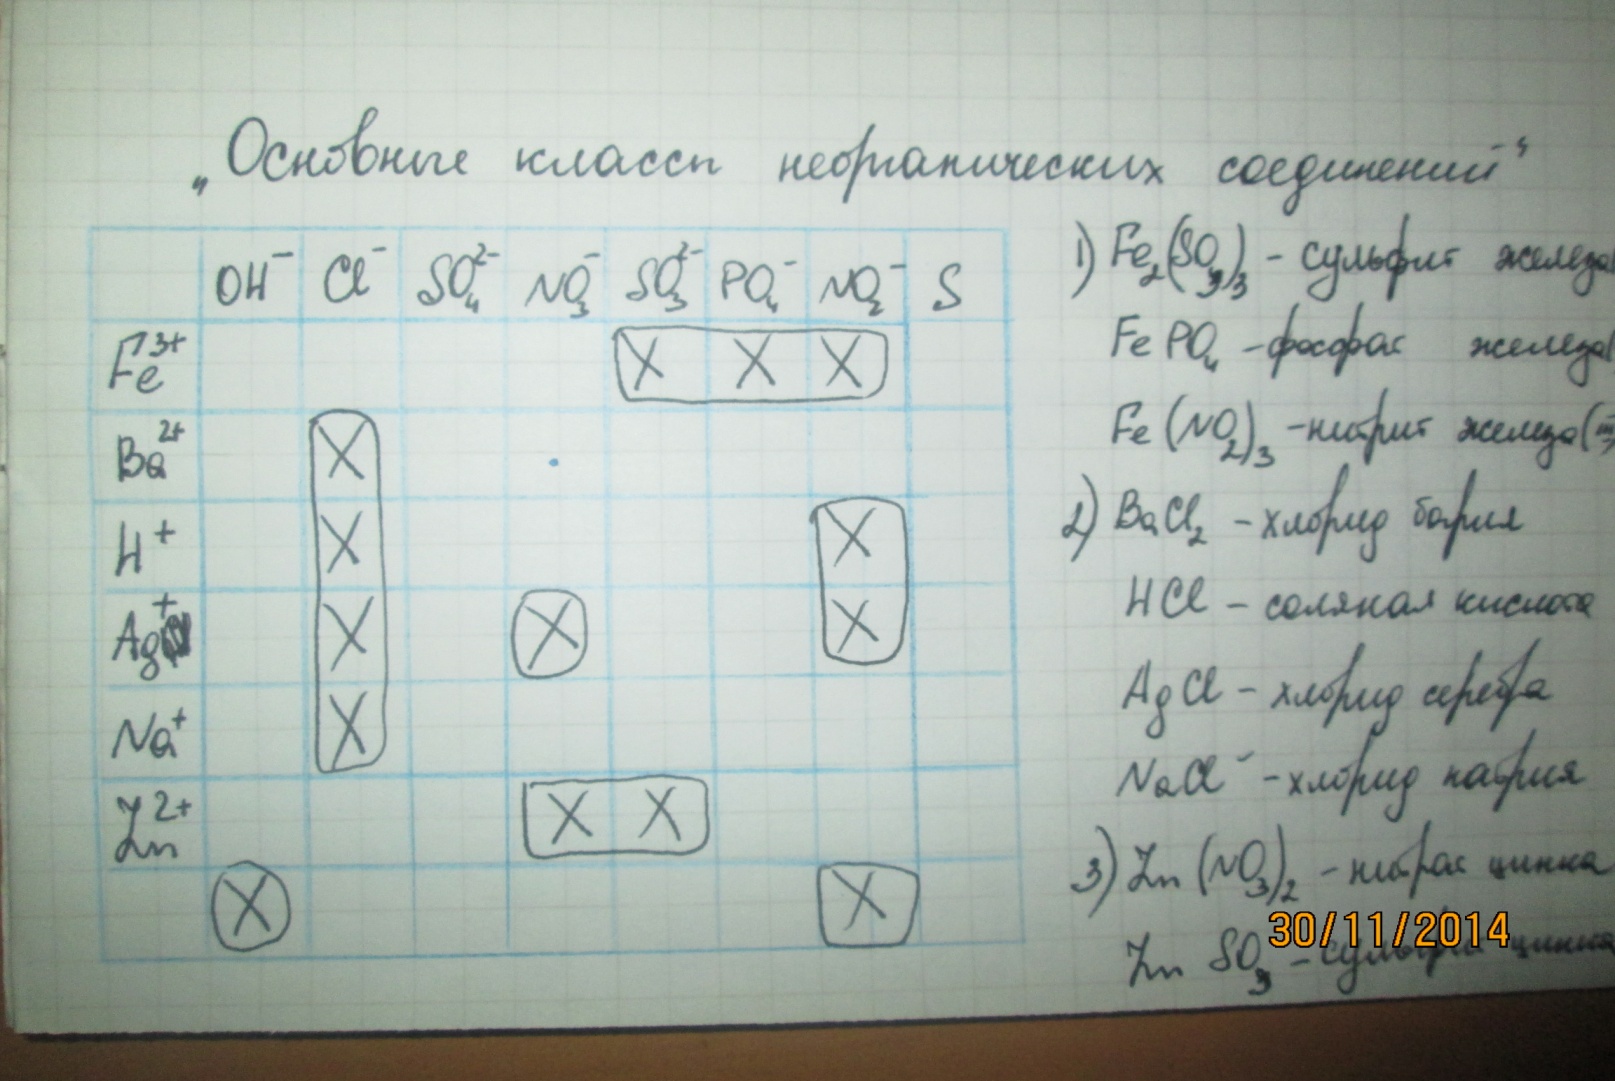 „Основные классы неорганических соединений"
OH⁻ Cl⁻ SO₄²⁻ NO₃⁻ SO₃²⁻ PO₄⁻ NO₂⁻ S
Fe³⁺ X X X
Ba²⁺ X
H⁺ X X
Ag⁺ X X X
Na⁺ X
Zn²⁺ X X
X X
1) Fe₂(SO₃)₃ - сульфит железа
FePO₄ - фосфат железа(
Fe(NO₂)₃ - нитрит железа(III)
2) BaCl₂ - хлорид бария
HCl - соляная кислота
AgCl - хлорид серебра
NaCl⁻ - хлорид натрия
3) Zn(NO₃)₂ - нитрат цинка
ZnSO₃ - цинка
30/11/2014